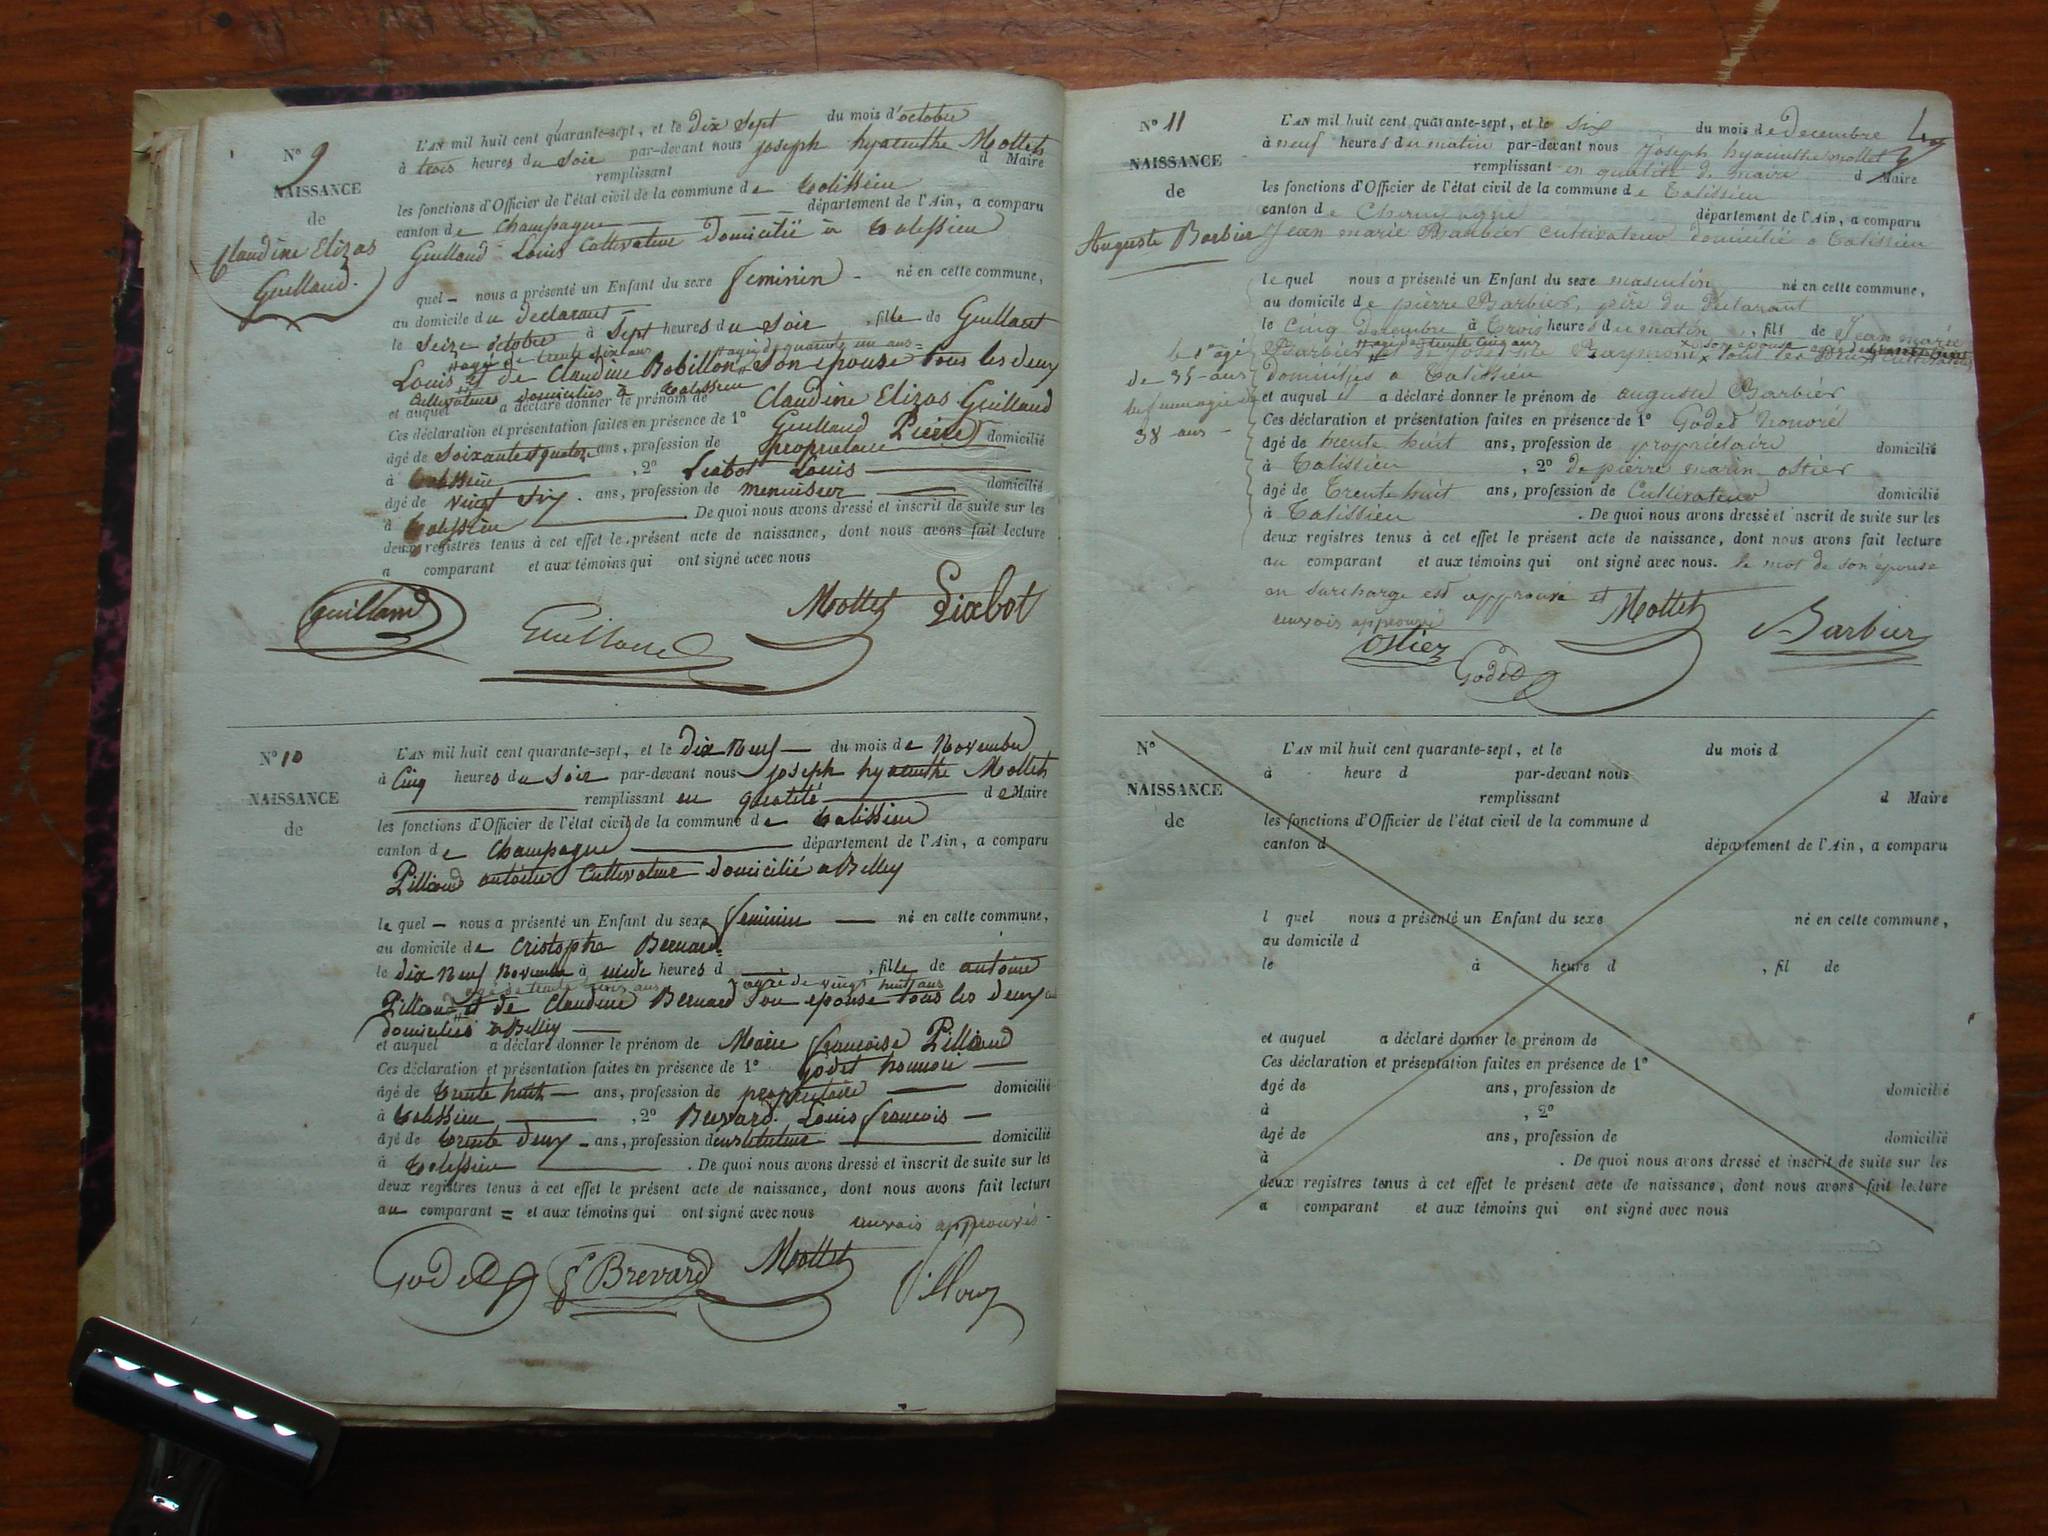 N° 9
NAISSANCE
de
Claudine Elizas
Guilland.
L'AN mil huit cent quarante-sept, et le dix sept du mois d'octobre
à trois heures du soir par-devant nous joseph hyacinthe Mottet
remplissant d Maire
les fonctions d'Officier de l'état civil de la commune de talissieu
canton de Champagne département de l'Ain, a comparu
Guilland Louis Cultivateur domicilié à talissieu
quel nous a présenté un Enfant du sexe feminin né en cette commune,
au domicile du declarant
le seize octobre à sept heures du soir, fille de Guilland
agé de trente six ans agée de quarante un ans
Louis et de Claudine Bobillon son épouse tous les deux
Cultivateurs domiciliés à talissieu
et auquel a déclaré donner le prénom de Claudine Elizas Guilland
Ces déclaration et présentation faites en présence de 1° Guilland Pierre
âgé de soixante et quatorze ans, profession de propriétaire domicilié
à talissieu, 2° Liabot Louis
âgé de vingt six ans, profession de menuisier domicilié
à talissieu. De quoi nous avons dressé et inscrit de suite sur les
deux registres tenus à cet effet le présent acte de naissance, dont nous avons fait lecture
a comparant et aux témoins qui ont signé avec nous
Guilland Guilland Mottet Liabot
N° 10
NAISSANCE
de
L'AN mil huit cent quarante-sept, et le dix neuf du mois de Novembre
à Cinq heures du soir par-devant nous joseph hyacinthe Mottet
remplissant en qualité de Maire
les fonctions d'Officier de l'état civil de la commune de talissieu
canton de Champagne département de l'Ain, a comparu
Pilliond antoine Cultivateur domicilié a Belley
le quel nous a présenté un Enfant du sexe feminin né en cette commune,
au domicile de Cristophe Bernard
le dix neuf Novembre à midi heures d, fille de antoine
agé de trente trois ans agée de vingt huit ans
Pilliond et de Claudine Bernard son epouse tous les deux
domiciliés a Belley
et auquel a déclaré donner le prénom de Marie françoise Pilliond
Ces déclaration et présentation faites en présence de 1° godet honnoré
âgé de trente huit ans, profession de propriétaire domicilié
à talissieu, 2° Brevard Louis françois
âgé de trente deux ans, profession d'instituteur domicilié
à talissieu. De quoi nous avons dressé et inscrit de suite sur les
deux registres tenus à cet effet le présent acte de naissance, dont nous avons fait lecture
au comparant et aux témoins qui ont signé avec nous
renvois approuvés
Godet Brevard Mottet
N° 11
NAISSANCE
de
Auguste Barbier
L'AN mil huit cent quarante-sept, et le six du mois de decembre
à neuf heures du matin par-devant nous joseph hyacinthe mottet
remplissant en qualité de maire d Maire
les fonctions d'Officier de l'état civil de la commune de talissieu
canton de département de l'Ain, a comparu
Jean marie Barbier cultivateur domicilié a talissieu
le quel nous a présenté un Enfant du sexe masculin né en cette commune,
au domicile de pierre Barbier, père du declarant
le Cinq decembre à trois heures du matin, fils de Jean marie
Barbier et de Raymond tous les deux
domiciliés a talissieu
le 1er agé
de 35 ans
38 ans
et auquel il a déclaré donner le prénom de auguste Barbier
Ces déclaration et présentation faites en présence de 1° Godet honoré
âgé de trente huit ans, profession de propriétaire domicilié
à talissieu, 2° de pierre marin ostier
âgé de trente huit ans, profession de Cultivateur domicilié
à talissieu. De quoi nous avons dressé et inscrit de suite sur les
deux registres tenus à cet effet le présent acte de naissance, dont nous avons fait lecture
au comparant et aux témoins qui ont signé avec nous. le mot de son épouse
en surcharge est approuvé et
renvois approuvé
Mottet Barbier
Ostier Godet
N°
NAISSANCE
de
L'AN mil huit cent quarante-sept, et le du mois d
à heure d par-devant nous
remplissant d Maire
les fonctions d'Officier de l'état civil de la commune d
canton d département de l'Ain, a comparu
l quel nous a présenté un Enfant du sexe né en cette commune,
au domicile d
le à heure d, fil de
et auquel a déclaré donner le prénom de
Ces déclaration et présentation faites en présence de 1°
âgé de ans, profession de domicilié
à, 2°
âgé de ans, profession de domicilié
à. De quoi nous avons dressé et inscrit de suite sur les
deux registres tenus à cet effet le présent acte de naissance, dont nous avons fait lecture
a comparant et aux témoins qui ont signé avec nous